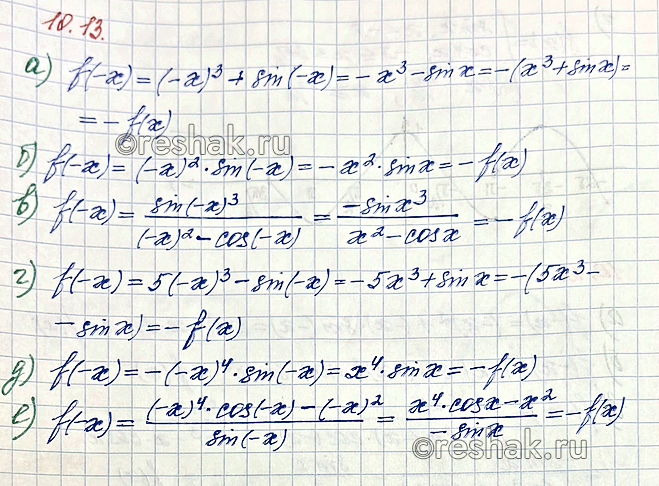 10.13.
а) f(-x) = (-x)³ + sin(-x) = -x³ - sinx = -(x³ + sinx) =
= -f(x)
©reshak.ru
б) f(-x) = (-x)² · sin(-x) = -x² · sinx = -f(x)
в) f(-x) = sin(-x)³ / ((-x)² - cos(-x)) = -sinx³ / (x² - cosx) = -f(x)
г) f(-x) = 5(-x)³ - sin(-x) = -5x³ + sinx = -(5x³ -
- sinx) = -f(x)
д) f(-x) = -(-x)⁴ · sin(-x) = x⁴ · sinx = -f(x)
е) f(-x) = ((-x)⁴ · cos(-x) - (-x)²) / sin(-x) = (x⁴ · cosx - x²) / -sinx = -f(x)
©reshak.ru